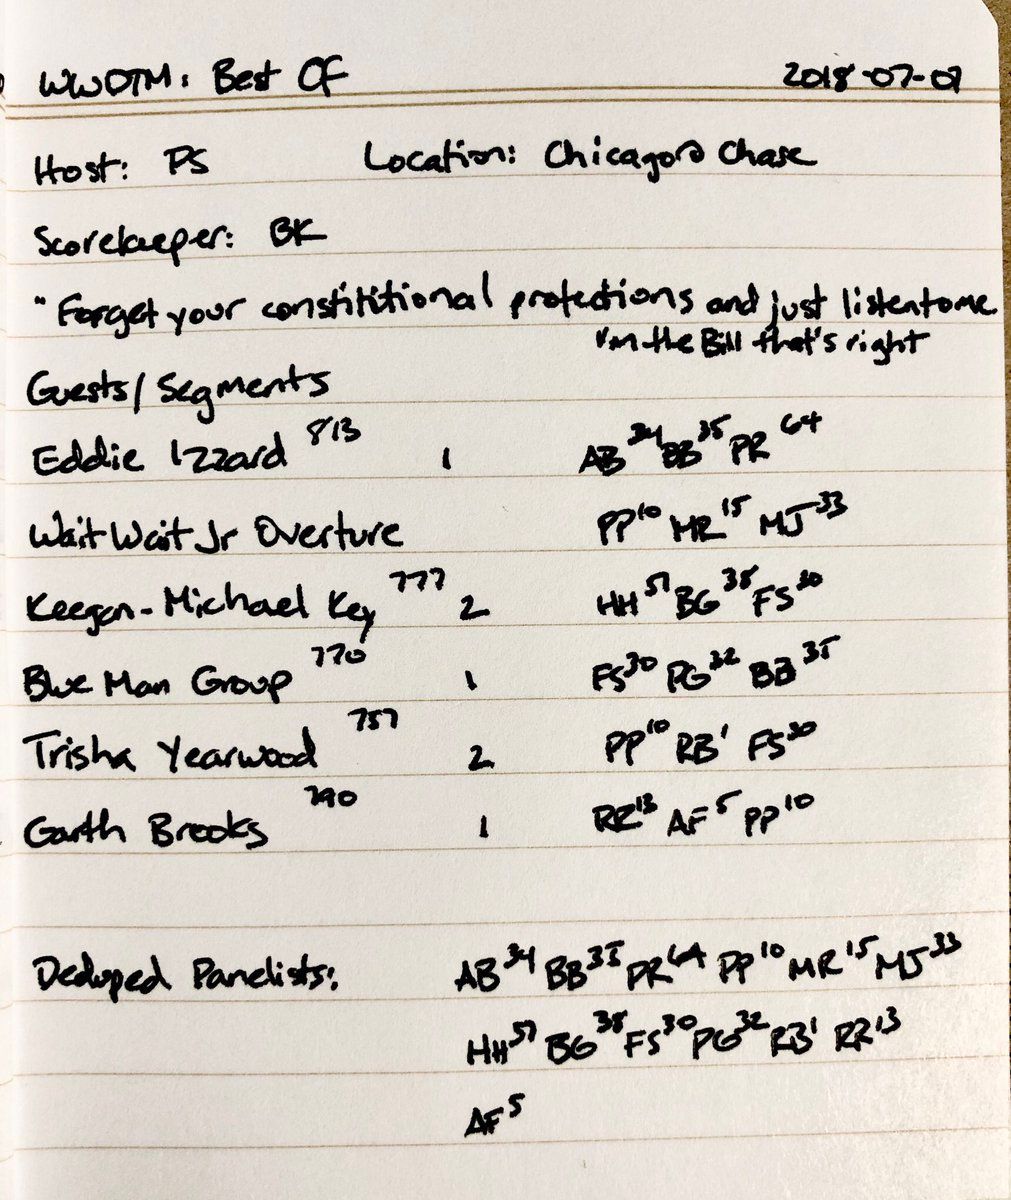 WWDTM: Best Of 2018-07-07
Host: PS Location: Chicago @ Chase
Scorekeeper: BK
"Forget your constititional protections and just listen to me
I'm the Bill that's right
Guests/Segments
Eddie Izzard 813 1 AB34 BB35 PR64
Wait Wait Jr Overture PP10 MR15 MJ33
Keegan-Michael Key 777 2 HH51 BG38 FS30
Blue Man Group 770 1 FS30 PG32 BB35
Trisha Yearwood 757 2 PP10 RB1 FS30
Garth Brooks 790 1 RR13 AF5 PP10
Deduped Panelists: AB34 BB35 PR64 PP10 MR15 MJ33
HH51 BG38 FS30 PG32 RB1 RR13
AF5